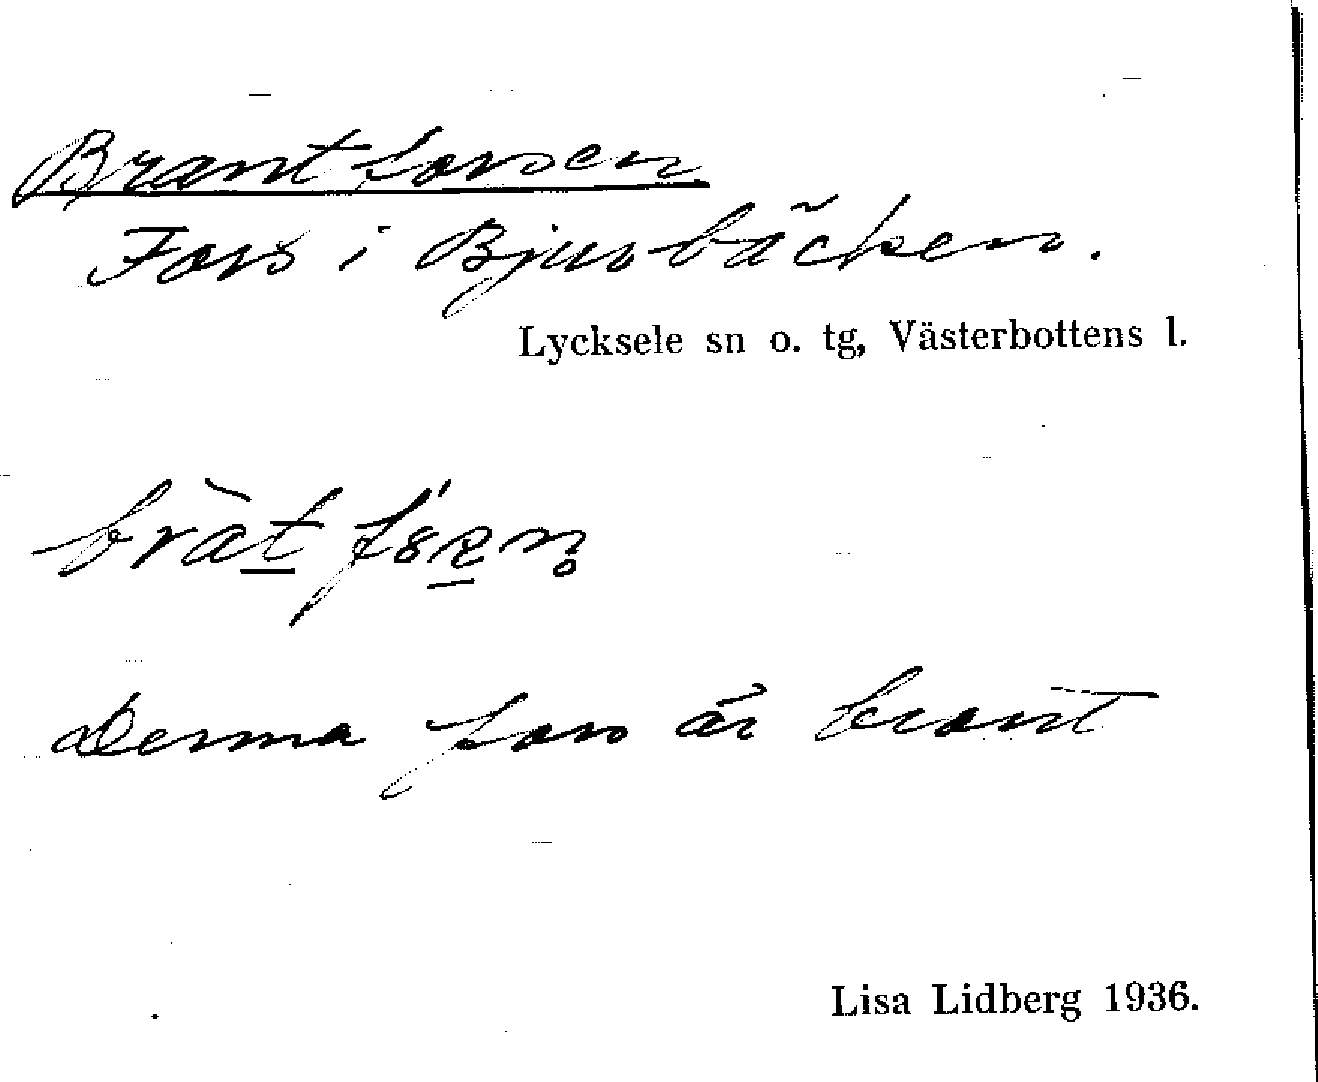 Brantforsen
Fors i Bjurbäcken.
Lycksele sn o. tg, Västerbottens l.
Denna fors är brant
Lisa Lidberg 1936.